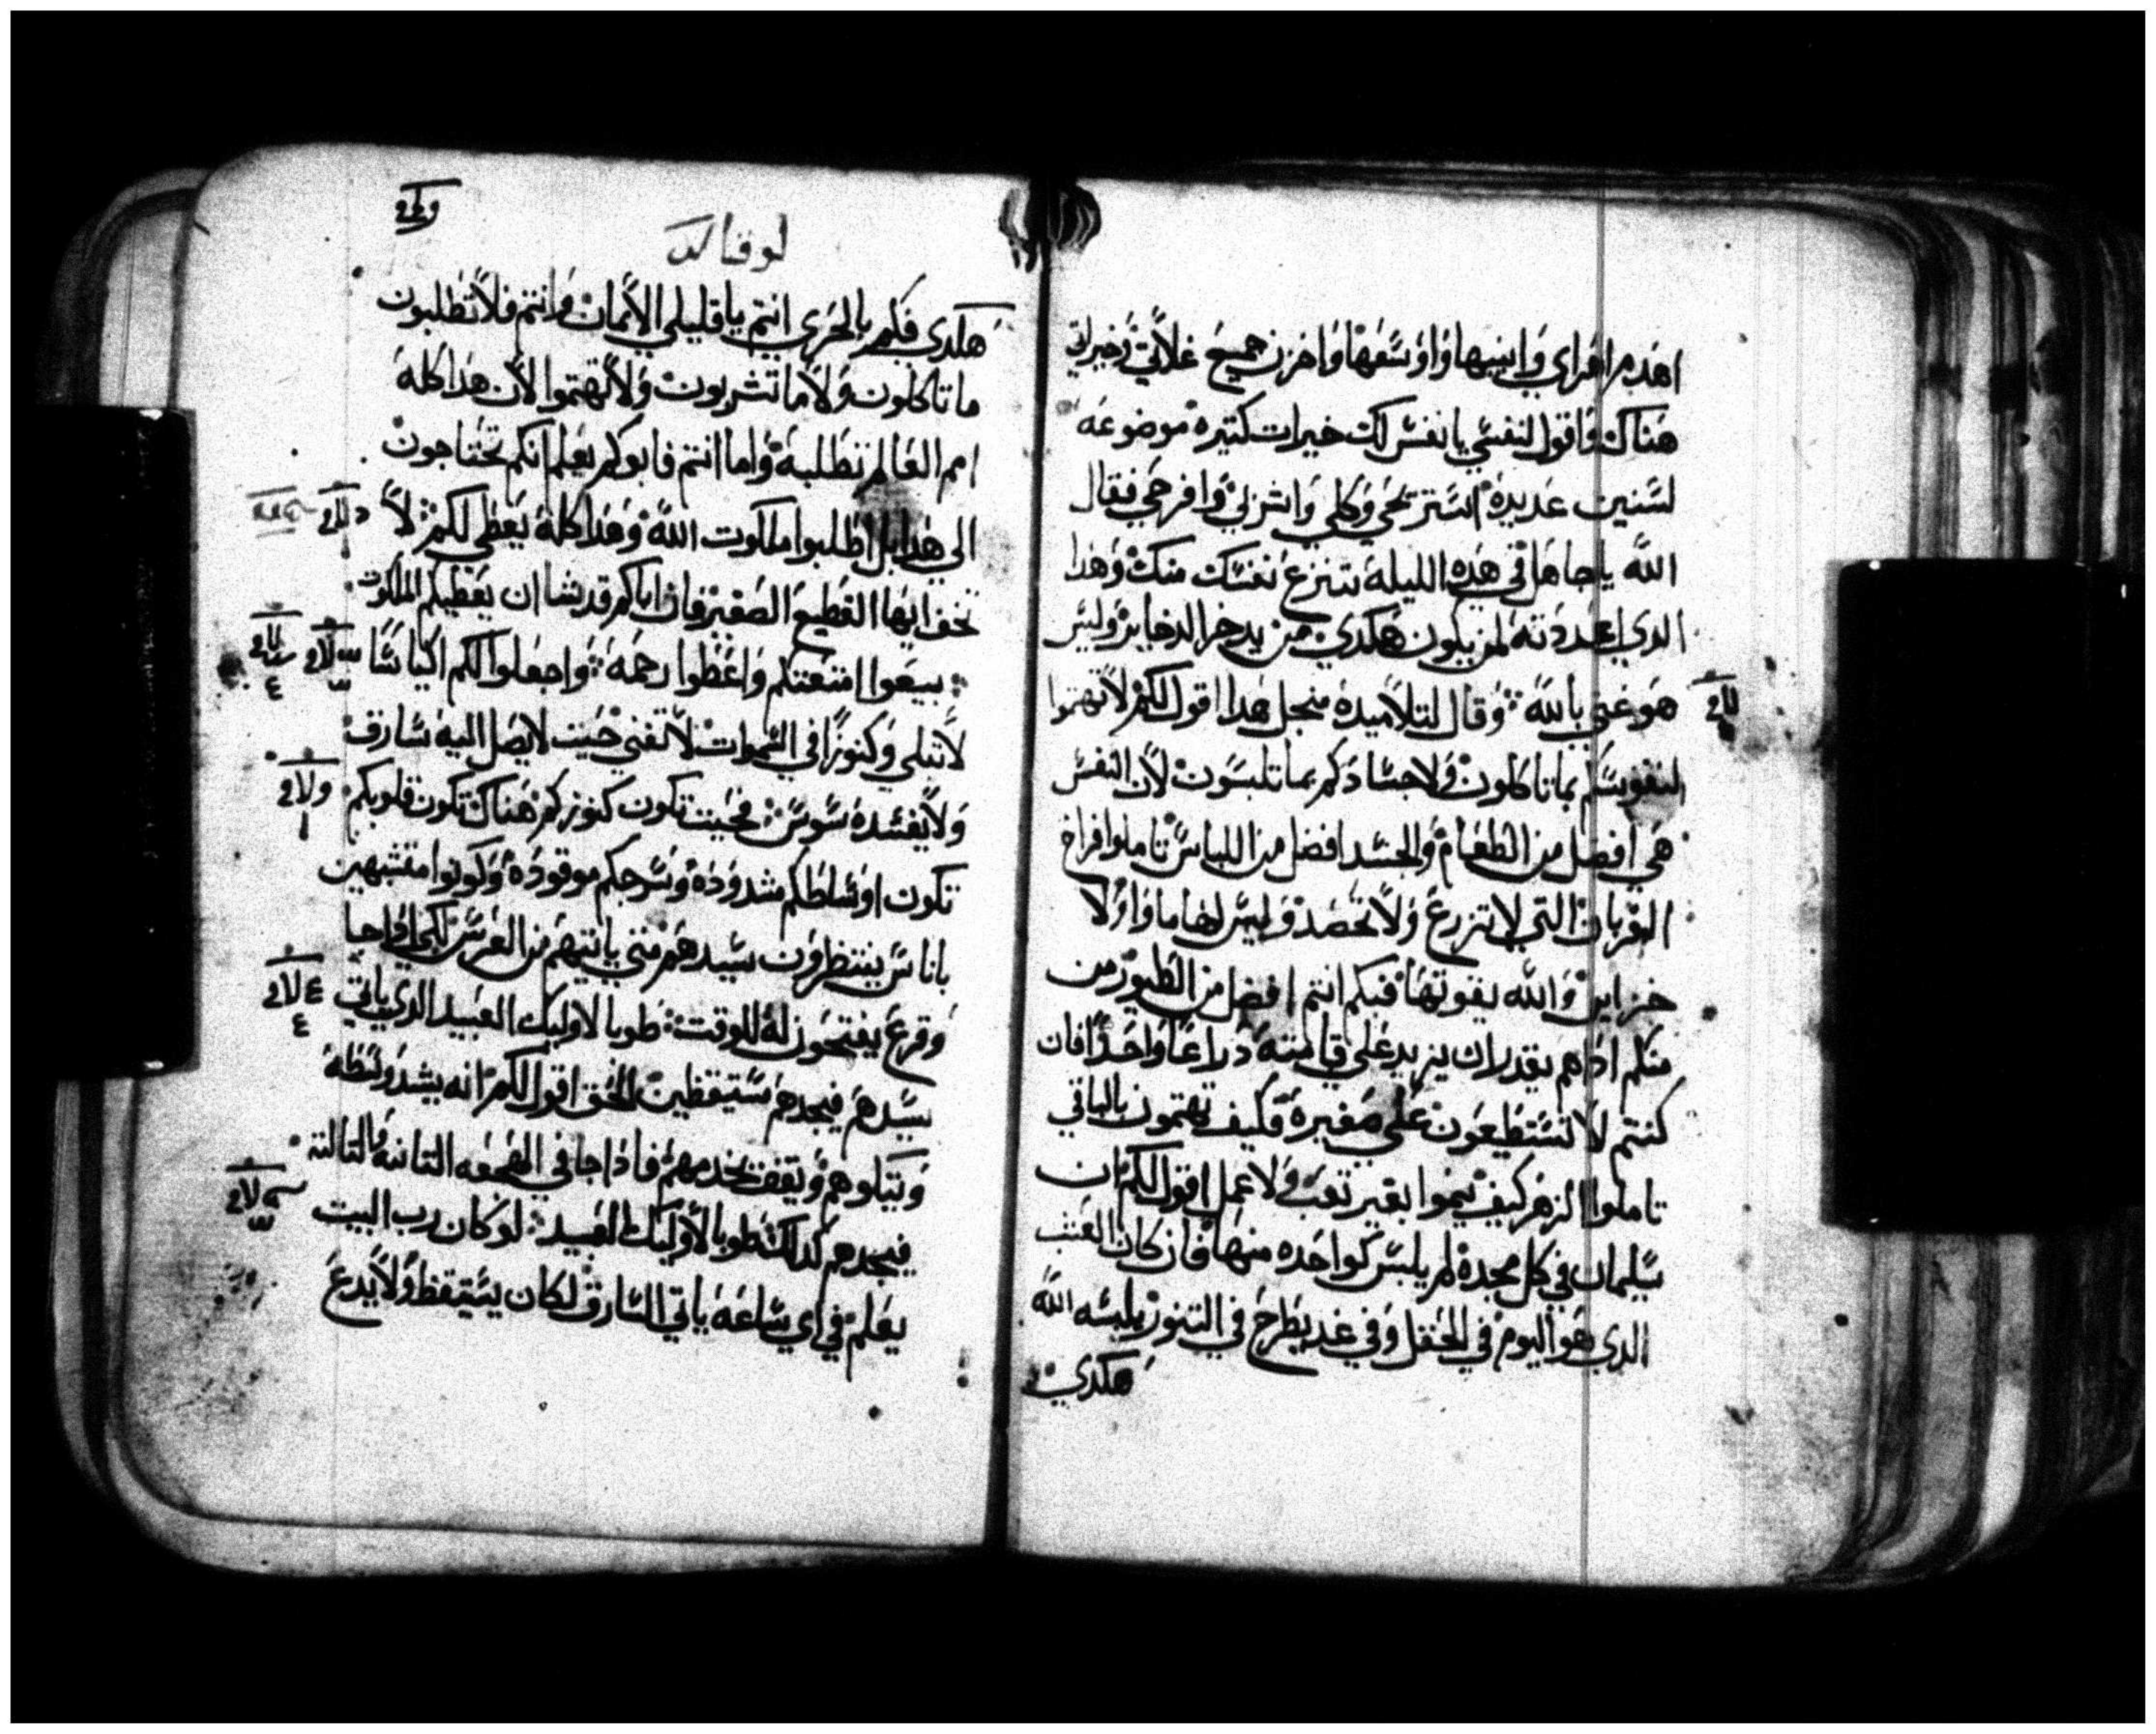 اهدم اهراي وابنيها واوسعها واخزن جميع غلاتي وخيراتي
هناك واقول لنفسي يا نفس لك خيرات كتيره موضوعه
لسنين عديده استريحي وكلي واشربي وافرحي فقال
الله يا جاهل في هده الليله تنزع نفسك منك وهدا
الدي اعددته لمن يكون هكدي من يدخر الدخاير وليس
هو غني بالله وقال لتلاميده منجل هدا اقول لكم لا تهتموا
لنفوسكم بما تاكلون ولا جسادكم بما تلبسون لان النفس
هي افضل من الطعام والجسد افضل من اللباس تاملوا فراخ
الغربان التي لا تزرع ولا تحصد وليس لها ماوا ولا
خزاين والله يقوتها فبكم انتم افضل من الطيور من
منكم ادا هم يقدر ان يزيد علي قامته دراعا واحدا فان
كنتم لا تستطيعون علي صغيره فكيف تهتمون بالباقي
تاملوا الزهر كيف ينموا بغير تعب ولا عمل اقول لكم ان
سليمان في كل مجده لم يلبس كواحده منها فان كان العشب
الدي هو اليوم في الحقل وفي غد يطرح في التنور يلبسه الله
هكدي
لوقا
هكدي فكم بالحري انتم يا قليلي الايمان وانتم فلا تطلبون
ما تاكلون ولا ما تشربون ولا تهتموا لان هدا كله
امم العالم تطلبه واما انتم فابوكم يعلم انكم تحتاجون
الي هدا بل اطلبوا ملكوت الله وهدا كله يعطي لكم لا
تخف ايها القطيع الصغير فان اباكم قد شا ان يعطيكم الملكوت
بيعوا امتعتكم واعطوا رحمه واجعلوا لكم اكياسا
لا تبلي وكنوزا في السموات لا تفني حيت لا يصل اليه سارق
ولا يفسده سوس فحيت تكون كنوزكم هناك تكون قلوبكم
تكون اوساطكم مشدوده وسرجكم موقوده وكونوا متشبهين
باناس ينتظرون سيدهم متي ياتيهم من العرس لكي ادا جا
وقرع يفتحون له للوقت طوبا لاوليك العبيد الدي ياتي
سيدهم فيجدهم مستيقظين الحق اقول لكم انه يشد وسطه
ويتكاوهم ويقف يخدمهم فادا جا في الهجعه التانيه والتالته
فيجدهم كدلك طوبا لاوليك العبيد لو كان رب البيت
يعلم في اي ساعه ياتي السارق لكان يستيقظ ولا يدع